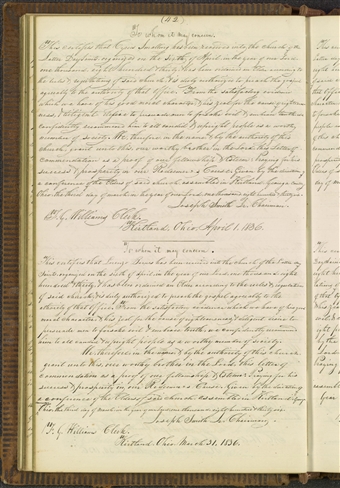 (42)
To whom it may concern.
This certifies that has been received into the church of the
Latter Day Saints organized on the Sixth of April in the year of our Lord
one thousand, eight hundred & thirty, & has been ordained an Elder according to
the rules & regulations of said church & is duly authorized to preach the gospel
agreeably to the authority of that office. From the satisfactory evidence
which we have of his good moral character & his zeal for the cause of righteous-
ness & diligent desire to persuade men to forsake evil & embrace truth we
confidently recommend him to all candid & upright people as a worthy
member of society. We therefore in the name & by the authority of this
church, grant unto this, our worthy brother in the Lord, this letter of
commendation as a proof of our fellowship & esteem: Praying for his
success & prosperity in our Redeemer's Cause. Given by the direction of
a conference of the Elders of said church assembled in Kirtland, Geauga county,
Ohio, the third day of March in the year of our Lord one thousand eight hundred & thirty six.
Joseph Smith Jr. Chairman.
F. G. Williams Clerk.
Kirtland, Ohio, April 1. 1836.
To whom it may concern.
This certifies that has been received into the church of the Latter Day
Saints organized on the sixth of April in the year of our Lord one thousand eight
hundred & thirty, & has been ordained an Elder according to the rules & regulations
of said church, & is duly authorized to preach the gospel agreeably to the
authority of that office. From the satisfactory evidence which we have of his good
moral character & his zeal for the cause of righteousness & diligent desire to
persuade men to forsake evil & embrace truth we confidently recommend
him to all candid & upright people as a worthy member of society.
We therefore in the name & by the authority of this church
grant unto this our worthy brother in the Lord, this letter of
commendation as a proof of our fellowship & esteem: Praying for his
success & prosperity in our Redeemer's Cause. Given by the direction of
a conference of the Elders of said church assembled in Kirtland, Geauga county,
Ohio, the third day of March in the year of our Lord one thousand eight hundred & thirty six.
Joseph Smith Jr. Chairman.
F. G. Williams Clerk.
Kirtland, Ohio, March 31, 1836.